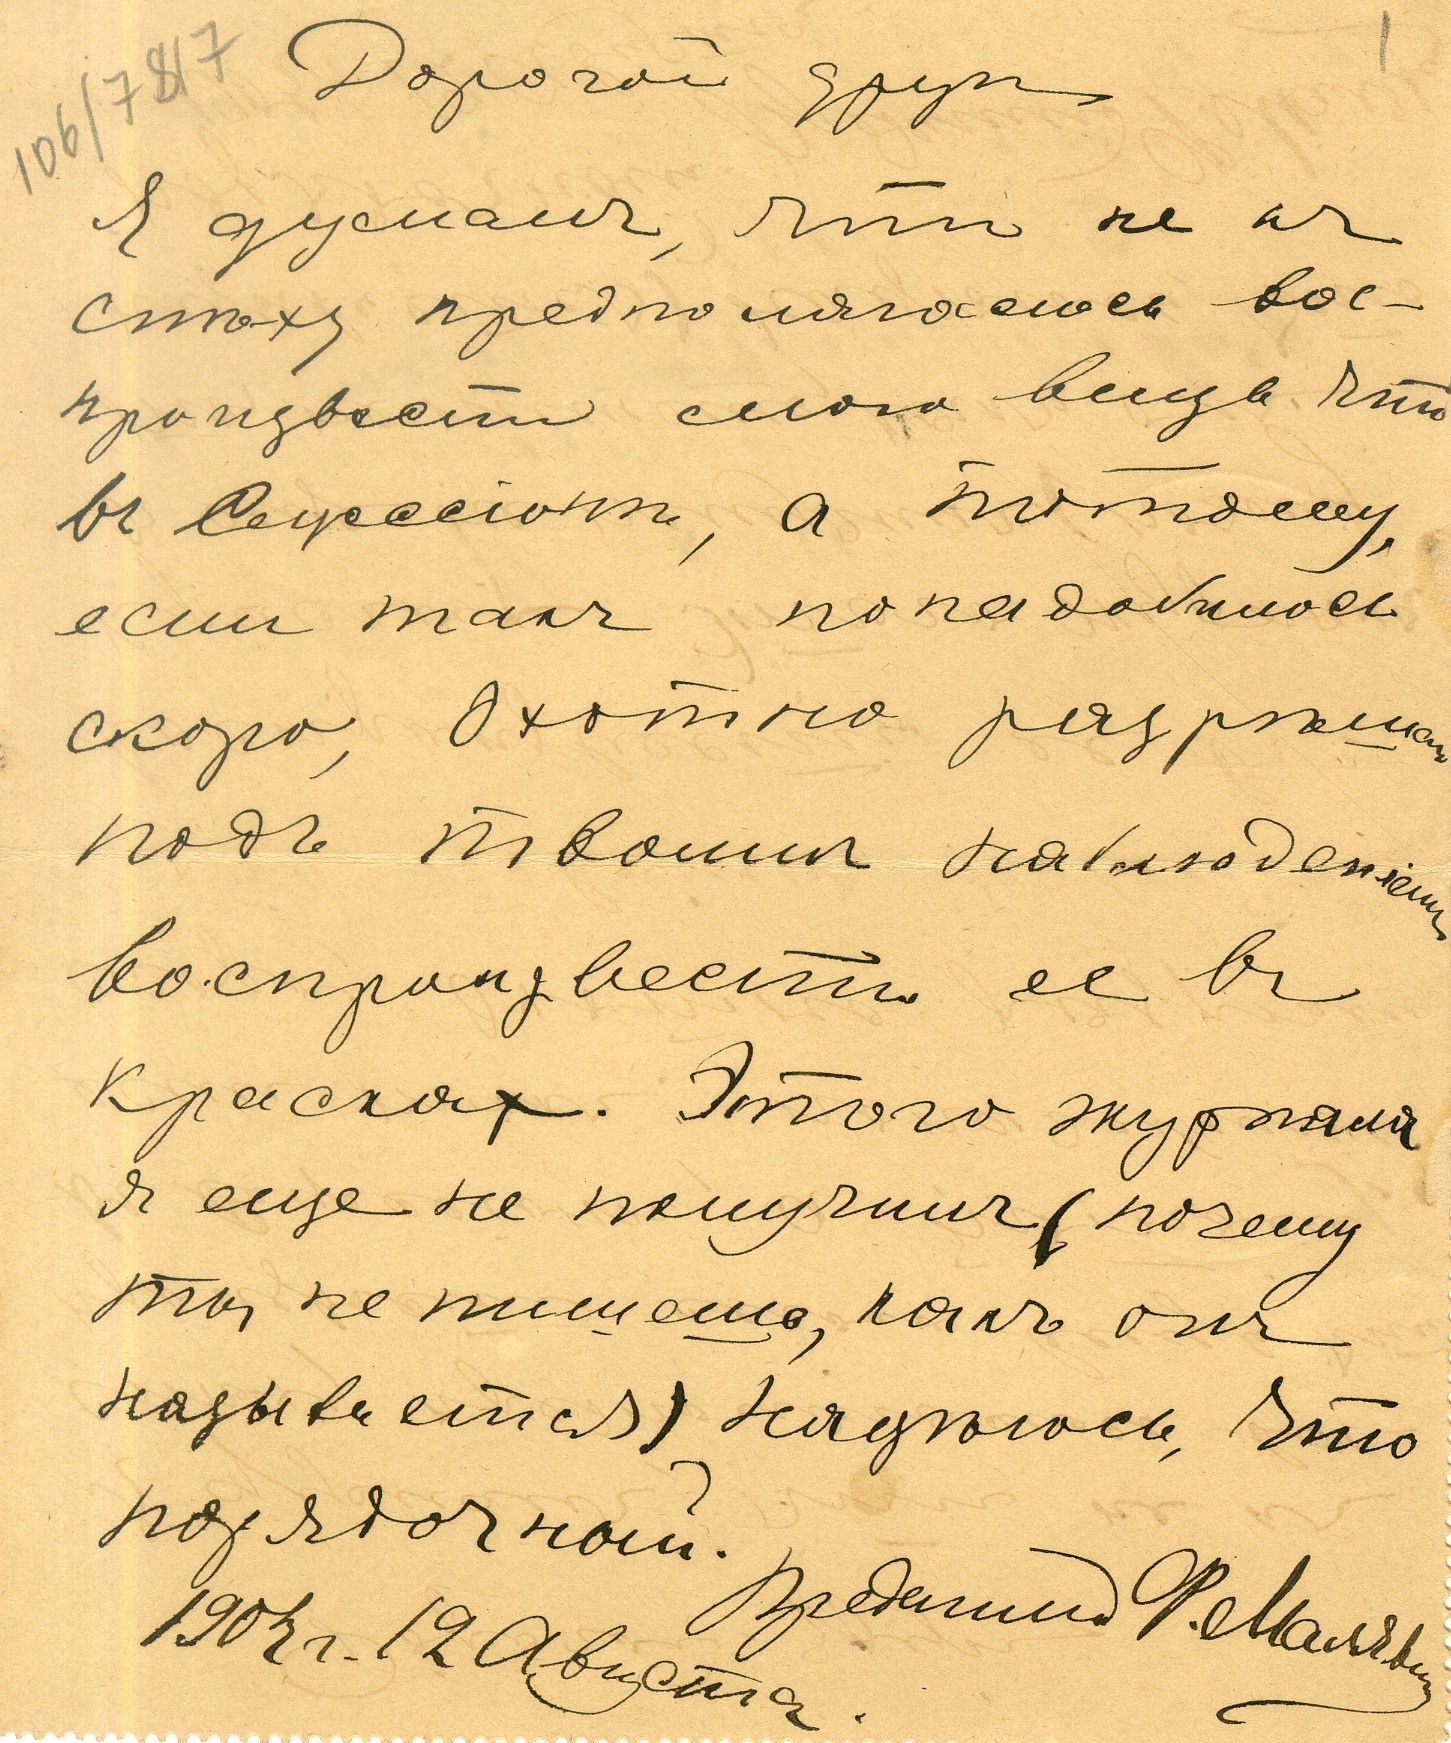 106/7817
1
Дорогой друг
Я думалъ, что не къ
спѣху предполагалось вос-
произвести мою вещь что
въ Сецессiонѣ, а потому,
если такъ понадобилось
скоро, охотно разрѣшаю
подъ твоимъ наблюденiемъ
воспроизвести ее въ
краскахъ. Этого журнала
я еще не получилъ (почему
ты не пишешь, какъ онъ
называется) надѣюсь, что
порядочный.
Преданный Ф. Малявин
г. 12 Августа.